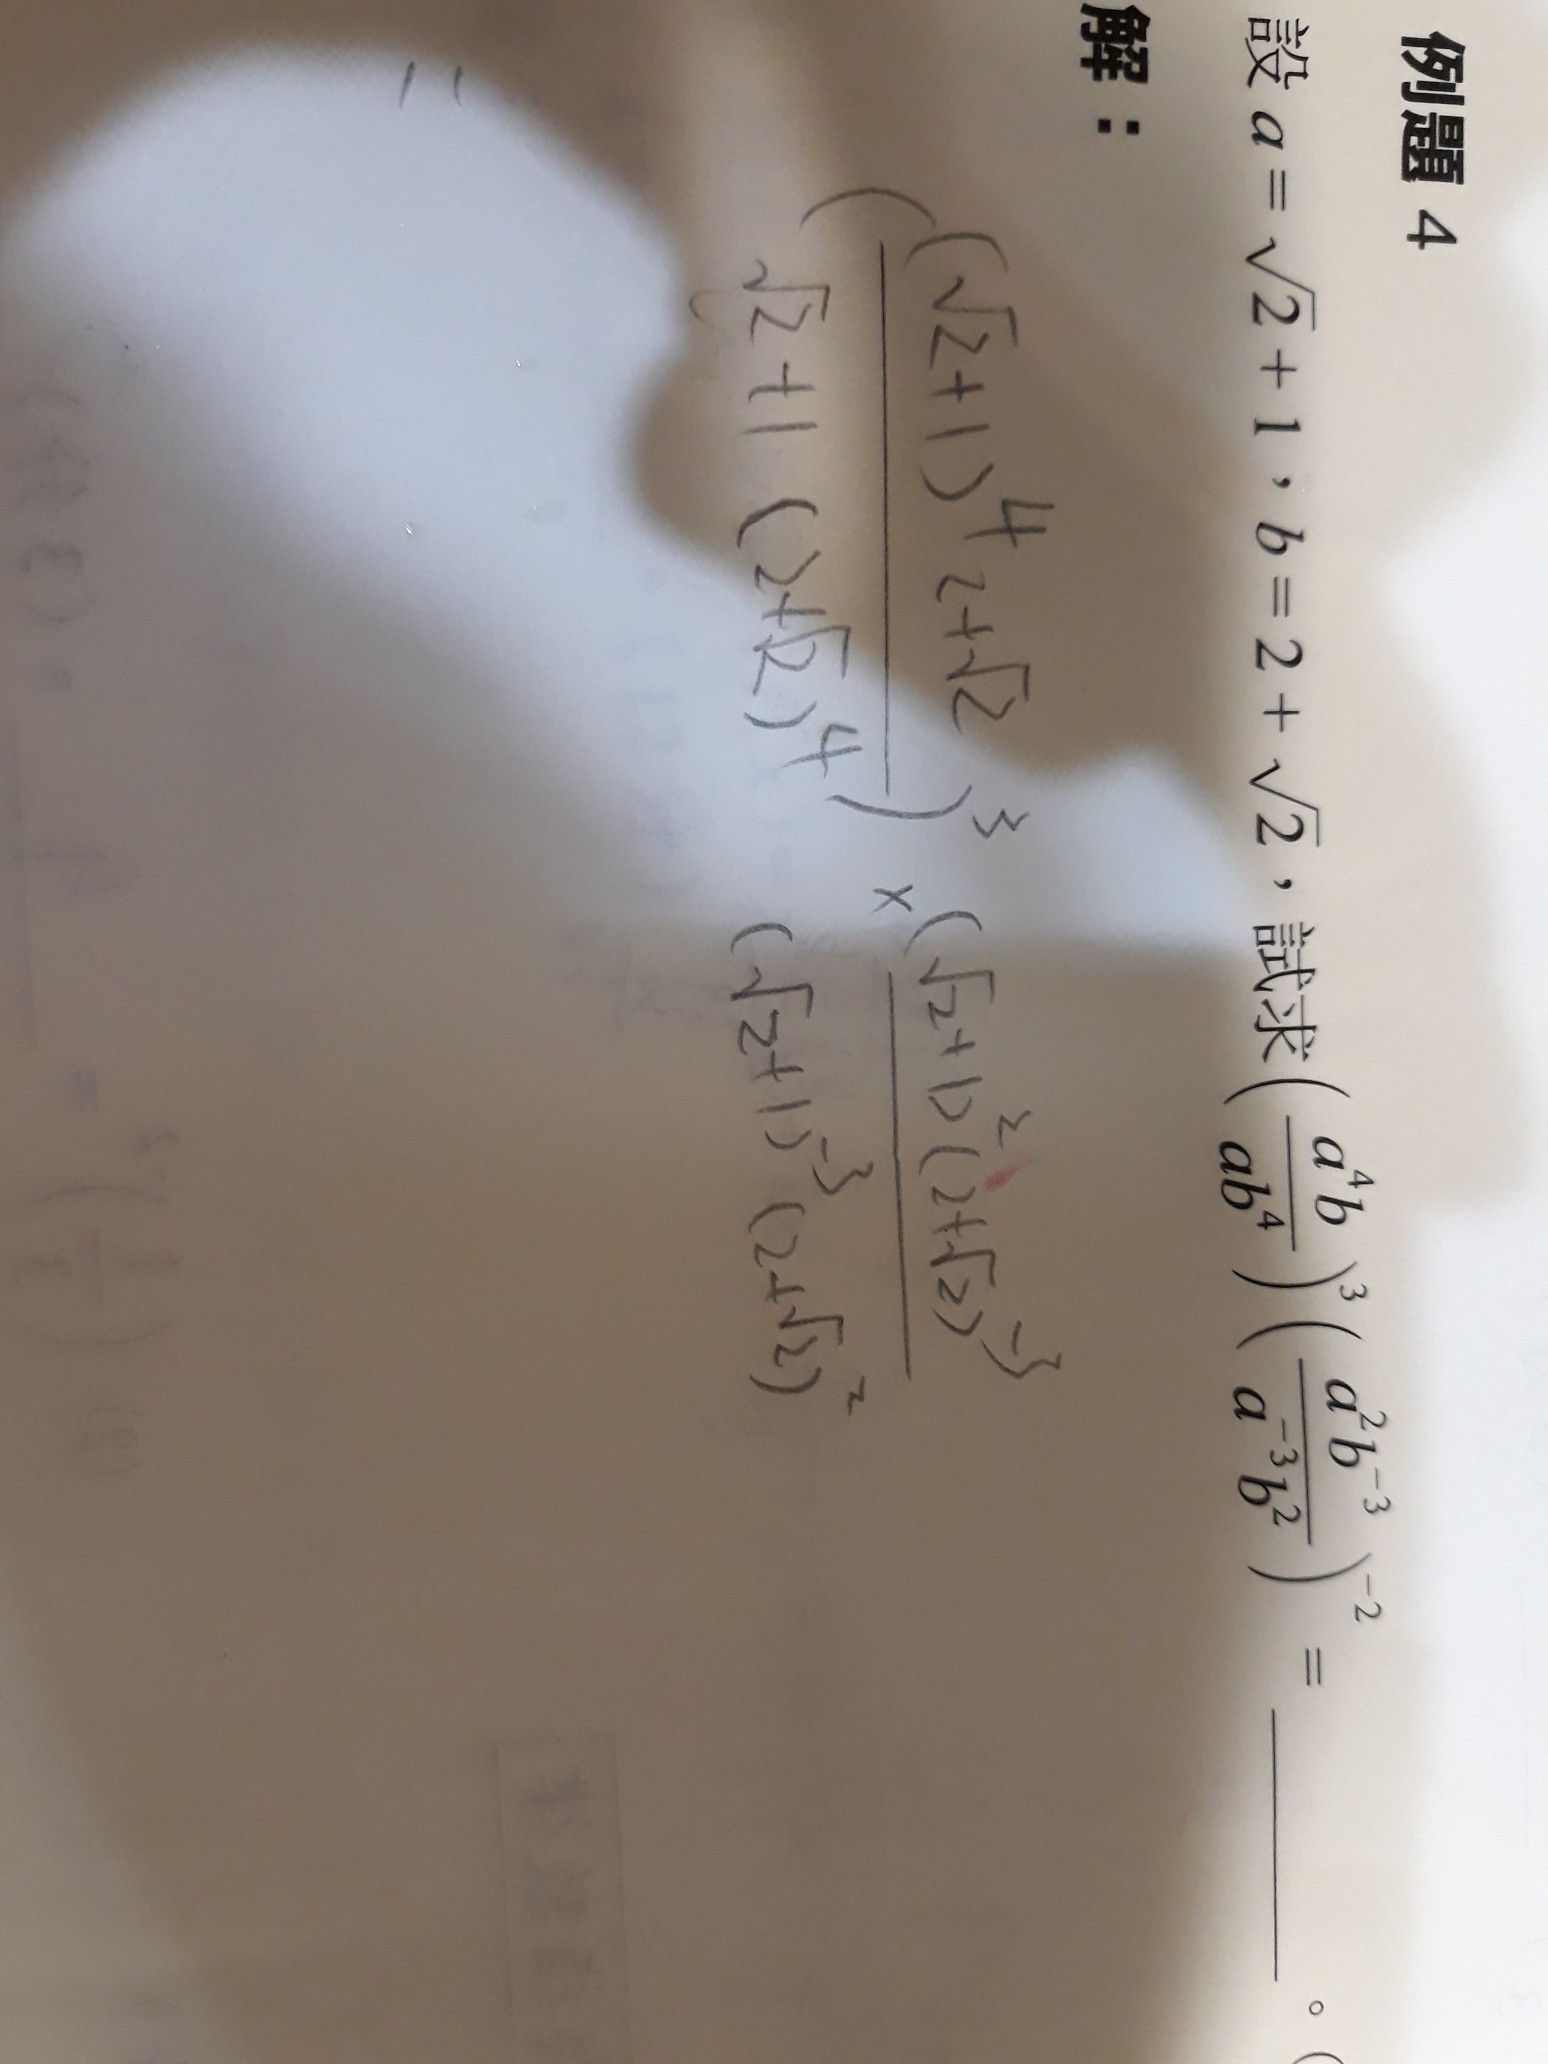 例題 4
設 a = √2 + 1，b = 2 + √2，試求 (a⁴b / ab⁴)³ (a²b⁻³ / a⁻³b²)⁻² = ______。(
解：
((√2+1)⁴ 2+√2 / √2+1 (2+√2)⁴)³ × (√2+1)²(2+√2)⁻³ / (√2+1)⁻³ (2+√2)²
=